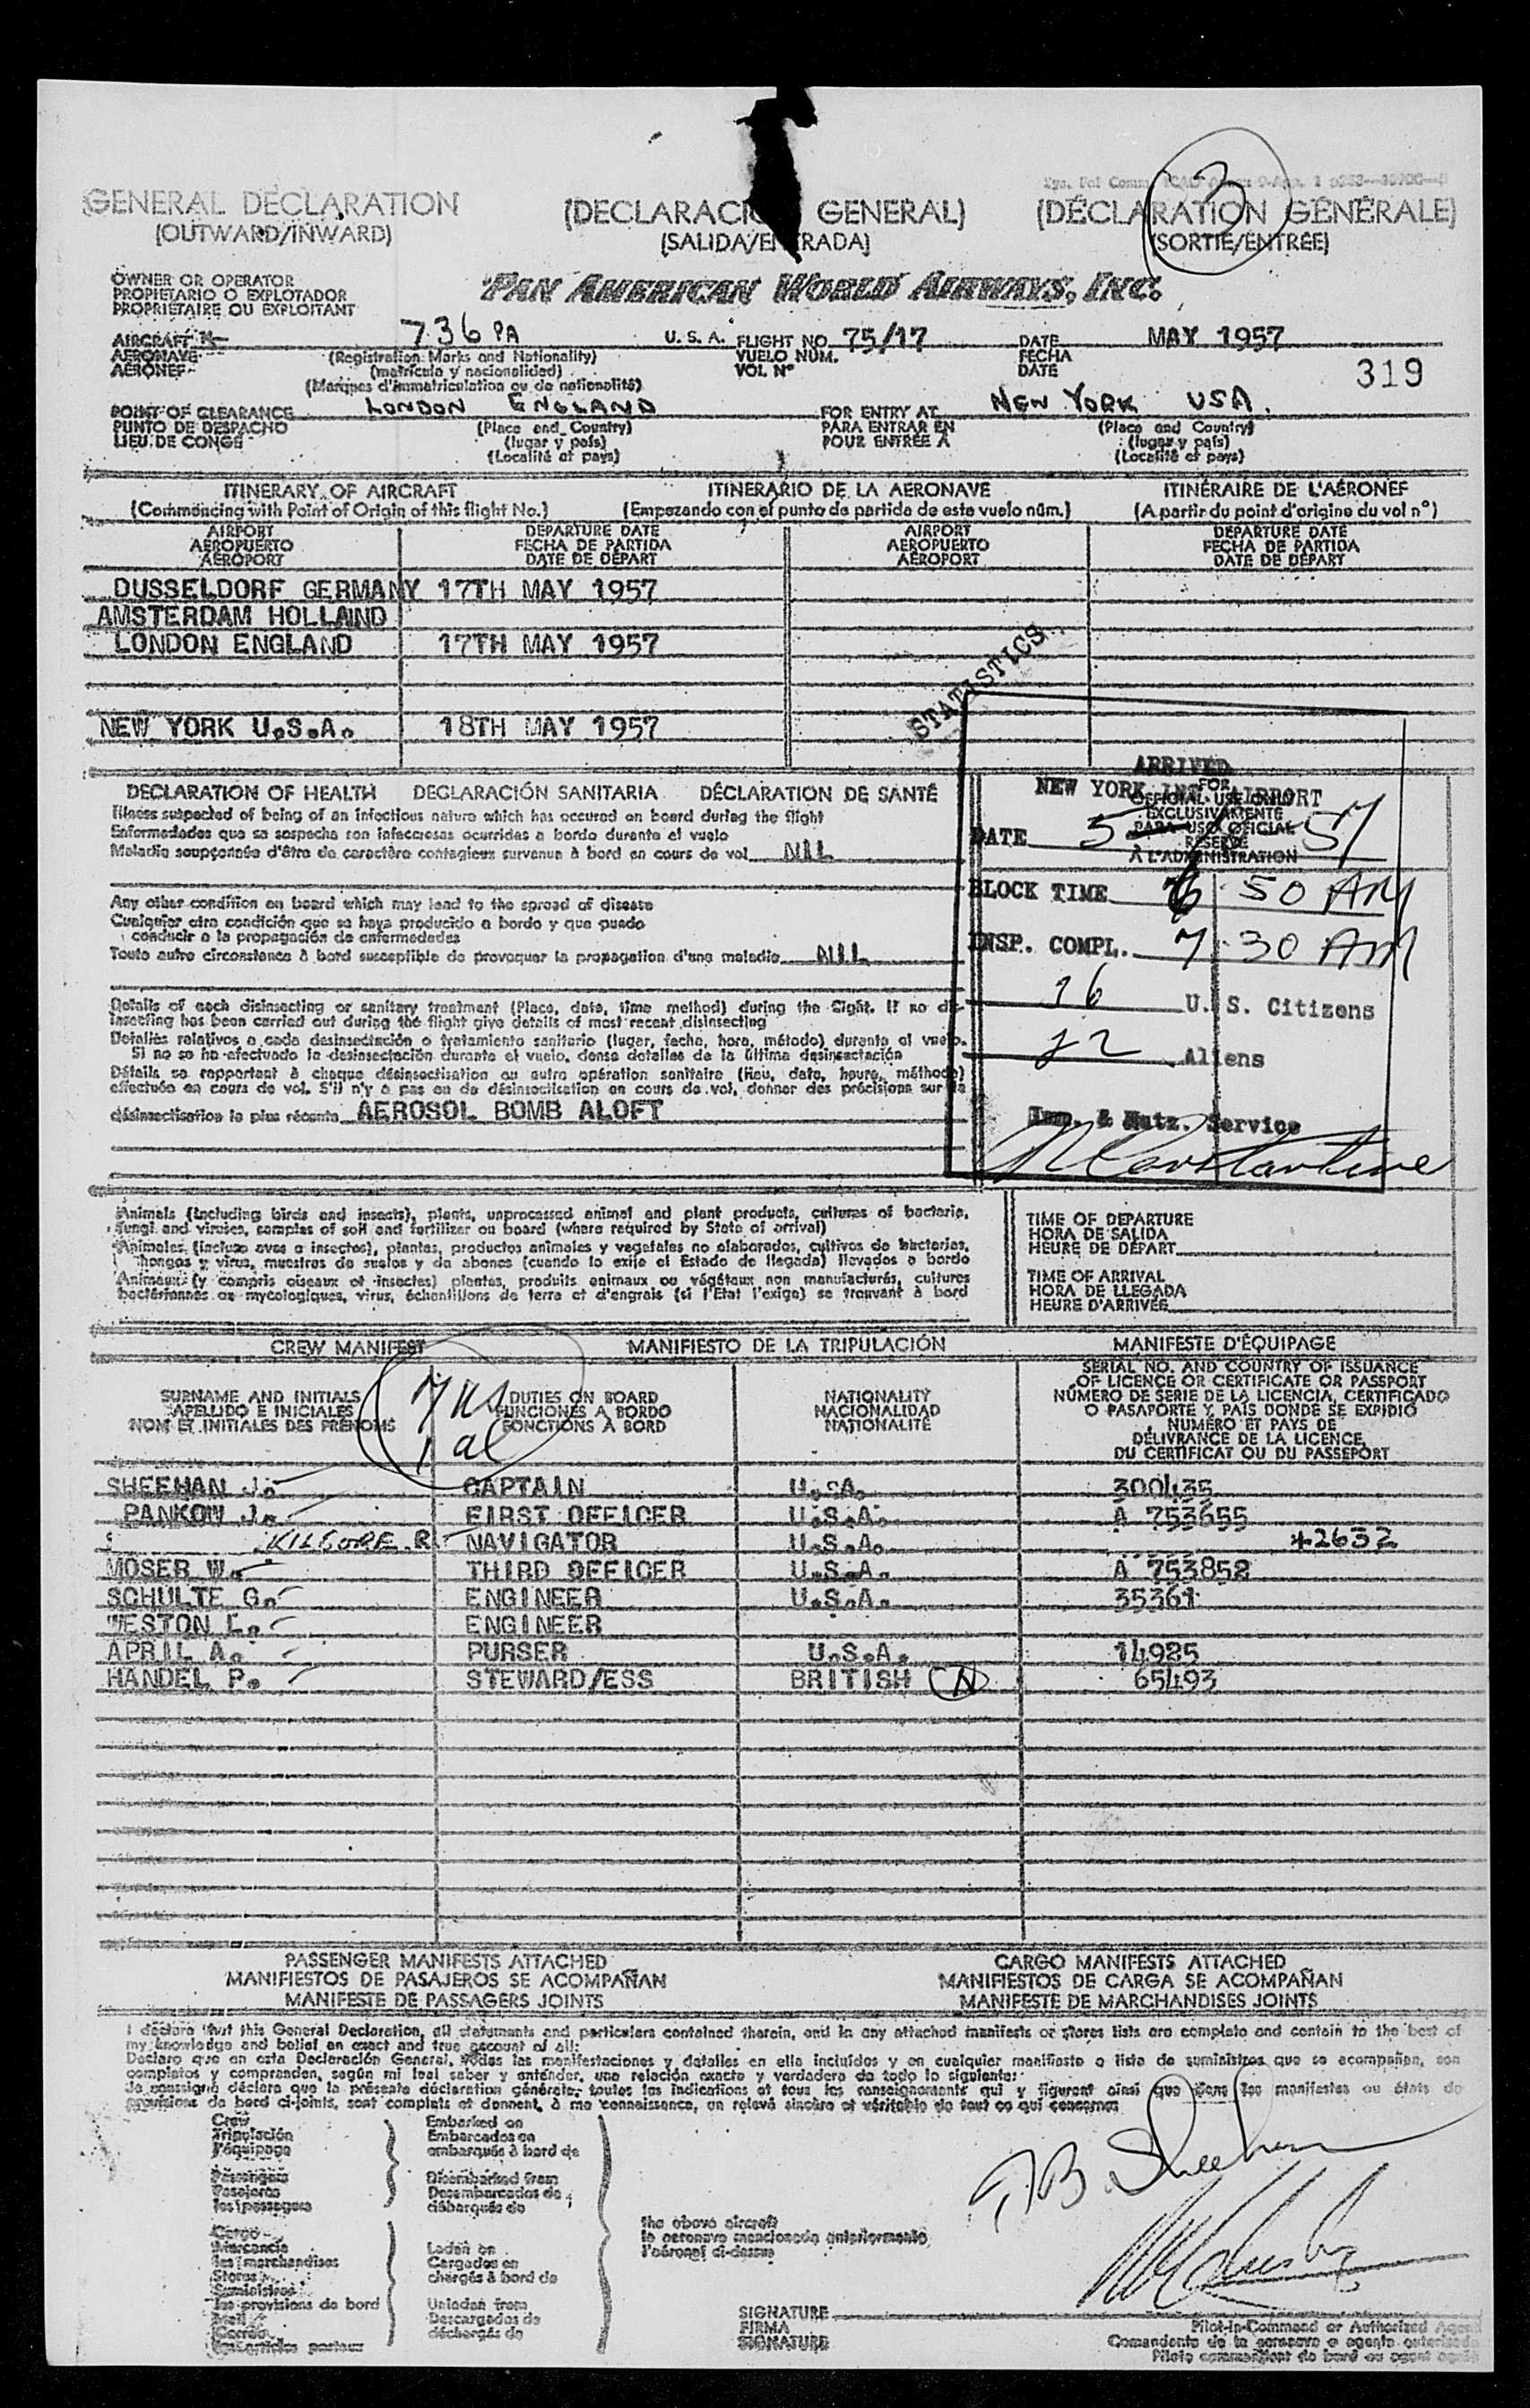 GENERAL DECLARATION (DECLARACIÓN GENERAL) (DÉCLARATION GÉNÉRALE)
(OUTWARD/INWARD) (SALIDA/ENTRADA) (SORTIE/ENTRÉE)
3
OWNER OR OPERATOR
PROPIETARIO O EXPLOTADOR
PROPRIETAIRE OU EXPLOITANT
PAN AMERICAN WORLD AIRWAYS, INC.
AIRCRAFT N 736 PA U.S.A. FLIGHT NO 75/17 DATE MAY 1957
AERONAVE (Registration Marks and Nationality) VUELO NÚM. FECHA
AÉRONEF (matrícula y nacionalidad) VOL Nº DATE 319
(Marques d'immatriculation ou de nationalité)
POINT OF CLEARANCE LONDON ENGLAND FOR ENTRY AT NEW YORK USA.
PUNTO DE DESPACHO (Place and Country) PARA ENTRAR EN (Place and Country)
LIEU DE CONGÉ (lugar y país) POUR ENTRÉE A (lugar y país)
(Localité et pays) (Localité et pays)
ITINERARY OF AIRCRAFT ITINERARIO DE LA AERONAVE ITINÉRAIRE DE L'AÉRONEF
(Commencing with Point of Origin of this flight No.) (Empezando con el punto de partida de este vuelo núm.) (A partir du point d'origine du vol nº)
AIRPORT DEPARTURE DATE AIRPORT DEPARTURE DATE
AEROPUERTO FECHA DE PARTIDA AEROPUERTO FECHA DE PARTIDA
AÉROPORT DATE DE DÉPART AÉROPORT DATE DE DÉPART
DUSSELDORF GERMANY 17TH MAY 1957
AMSTERDAM HOLLAND
LONDON ENGLAND 17TH MAY 1957
STATISTICS
NEW YORK U.S.A. 18TH MAY 1957
DECLARATION OF HEALTH DECLARACIÓN SANITARIA DÉCLARATION DE SANTÉ
Illness suspected of being of an infectious nature which has occured on board during the flight
Enfermedades que se sospecha son infecciosas ocurridas a bordo durante el vuelo
Maladie soupçonnée d'être de caractère contagieux survenue à bord en cours de vol NIL
Any other condition on board which may lead to the spread of disease
Cualquier otra condición que se haya producido a bordo y que pueda
conducir a la propagación de enfermedades
Toute autre circonstance à bord susceptible de provoquer la propagation d'une maladie NIL
Details of each disinsecting or sanitary treatment (Place, date, time method) during the flight. If no dis-
insecting has been carried out during the flight give details of most recent disinsecting
Detalles relativos a cada desinsectación o tratamiento sanitario (lugar, fecha, hora, método) durante el vuelo.
Si no se ha efectuado la desinsectación durante el vuelo, dense detalles de la última desinsectación
Détails se rapportant à chaque désinsectisation ou autre opération sanitaire (lieu, date, heure, méthode)
effectuée en cours de vol. S'il n'y a pas eu de désinsectisation en cours de vol, donner des précisions sur la
désinsectisation la plus récente AEROSOL BOMB ALOFT
ARRIVED
NEW YORK INT. AIRPORT
FOR
OFFICIAL USE ONLY
EXCLUSIVAMENTE
PARA USO OFICIAL
RÉSERVÉ
À L'ADMINISTRATION
DATE 5 57
BLOCK TIME 6 50 AM
INSP. COMPL. 7 30 AM
16 U. S. Citizens
22 Aliens
Imm. & Natz. Service
Animals (including birds and insects), plants, unprocessed animal and plant products, cultures of bacteria,
fungi and viruses, samples of soil and fertilizer on board (where required by State of arrival)
Animales (incluso aves e insectos), plantas, productos animales y vegetales no elaborados, cultivos de bacterias,
hongos y virus, muestras de suelos y de abonos (cuando lo exije el Estado de llegada) llevados a bordo
Animaux (y compris oiseaux et insectes) plantes, produits animaux ou végétaux non manufacturés, cultures
bactériennes ou mycologiques, virus, échantillons de terre et d'engrais (si l'Etat l'exige) se trouvant à bord
TIME OF DEPARTURE
HORA DE SALIDA
HEURE DE DÉPART
TIME OF ARRIVAL
HORA DE LLEGADA
HEURE D'ARRIVÉE
CREW MANIFEST MANIFIESTO DE LA TRIPULACIÓN MANIFESTE D'ÉQUIPAGE
7 us
1 al
SURNAME AND INITIALS DUTIES ON BOARD NATIONALITY
APELLIDO E INICIALES FUNCIONES A BORDO NACIONALIDAD
NOM ET INITIALES DES PRÉNOMS FONCTIONS À BORD NATIONALITÉ
SERIAL NO. AND COUNTRY OF ISSUANCE
OF LICENCE OR CERTIFICATE OR PASSPORT
NÚMERO DE SERIE DE LA LICENCIA, CERTIFICADO
O PASAPORTE Y PAÍS DONDE SE EXPIDIÓ
NUMÉRO ET PAYS DE
DÉLIVRANCE DE LA LICENCE,
DU CERTIFICAT OU DU PASSEPORT
SHEEHAN J. CAPTAIN U.SA. 300435
PANKOW J. FIRST OFFICER U.S.A. A 753655
KILGORE R NAVIGATOR U.S.A. 42632
MOSER W. THIRD OFFICER U.S.A. A 753852
SCHULTE G. ENGINEER U.S.A. 35361
WESTON L. ENGINEER
APRIL A. PURSER U.S.A. 14925
HANDEL P. STEWARD/ESS BRITISH N 65493
PASSENGER MANIFESTS ATTACHED CARGO MANIFESTS ATTACHED
MANIFIESTOS DE PASAJEROS SE ACOMPAÑAN MANIFIESTOS DE CARGA SE ACOMPAÑAN
MANIFESTE DE PASSAGERS JOINTS MANIFESTE DE MARCHANDISES JOINTS
I declare that this General Declaration, all statements and particulars contained therein, and in any attached manifests or stores lists are complete and contain to the best of
my knowledge and belief an exact and true account of all:
Declaro que en esta Declaración General, todas las manifestaciones y detalles en ella incluídos y en cualquier manifiesto o lista de suministros que se acompañan, son
completos y comprenden, según mi leal saber y entender, una relación exacta y verdadera de todo lo siguiente:
Je soussigné déclare que la présente déclaration générale, toutes les indications et tous les renseignements qui y figurent ainsi que dans les manifestes ou états de
provisions de bord ci-joints, sont complets et donnent, à ma connaissance, un relevé sincère et véritable de tout ce qui concerne
Crew Embarked on
Tripulación Embarcados en
l'équipage embarqués à bord de
Passengers Disembarked from
Pasajeros Desembarcados de
les passagers débarqués de
the above aircraft
la aeronave mencionada anteriormente
l'aéronef ci-dessus
Cargo
Mercancía Laden on
les marchandises Cargados en
Stores chargés à bord de
Suministros
les provisions de bord Unladen from
Mail Descargados de
Correo déchargés de
JB Sheehan
SIGNATURE
FIRMA
SIGNATURE
Pilot-in-Command or Authorized Agent
Comandante de la aeronave o agente autorizado
Pilote commandant de bord ou agent agréé